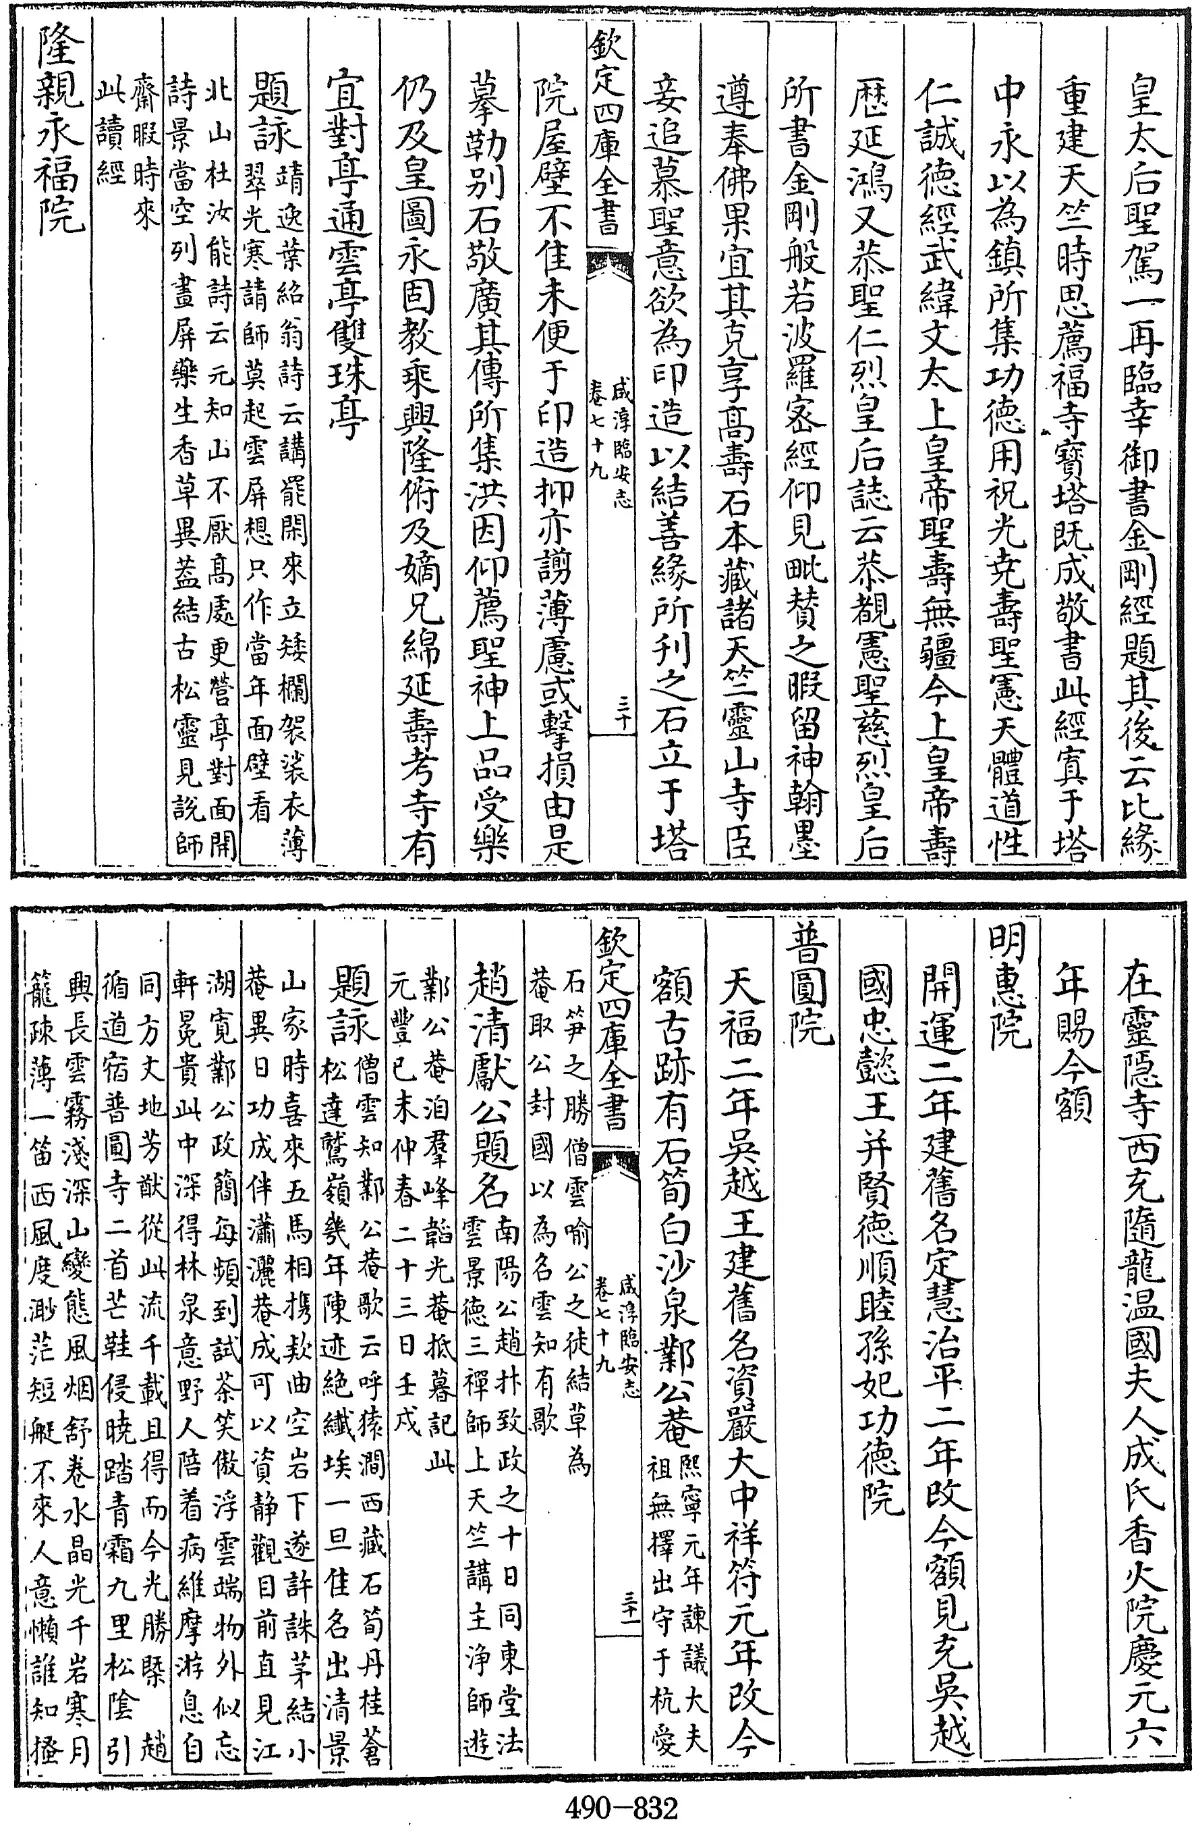 皇太后聖駕一再臨幸御書金剛經題其後云比緣
重建天竺時思薦福寺寶塔既成敬書此經寘于塔
中永以為鎮所集功德用祝光尭壽聖憲天體道性
仁誠德經武緯文太上皇帝聖壽無疆今上皇帝壽
歴延鴻又恭聖仁烈皇后誌云恭覩憲聖慈烈皇后
所書金剛般若波羅宻經仰見毗賛之暇留神翰墨
遵奉佛果宜其克享髙壽石本藏諸天竺靈山寺臣
妾追慕聖意欲為印造以結善緣所刋之石立于塔
欽定四庫全書
咸淳臨安志
卷七十九
三十
院屋壁不隹未便于印造抑亦謭薄慮或擊損由是
摹勒别石敬廣其傳所集洪因仰薦聖神上品受樂
仍及皇圖永固教乘興隆俯及嫡兄綿延壽考寺有
宜對亭通雲亭雙珠亭
題詠
靖逸葉紹翁詩云講罷閑來立矮欄袈裟衣薄
翠光寒請師莫起雲屏想只作當年面壁看
北山杜汝能詩云元知山不厭髙處更營亭對面開
詩景當空列畫屏藥生香草異蓋結古松靈見説師
齋暇時來
此讀經
隆親永福院
在靈隠寺西充隨龍温國夫人成氏香火院慶元六
年賜今額
明惠院
開運二年建舊名定慧治平二年改今額見充吳越
國忠懿王并賢德順睦孫妃功德院
普圓院
天福二年吳越王建舊名資嚴大中祥符元年改今
額古跡有石筍白沙泉鄴公菴
熙寧元年諫議大夫
祖無擇出守于杭愛
欽定四庫全書
咸淳臨安志
卷七十九
三十一
石笋之勝僧雲喻公之徒結草為
菴取公封國以為名雲知有歌
趙清獻公題名
南陽公趙抃致政之十日同東堂法
雲景德三禪師上天竺講主淨師遊
鄴公菴洎羣峰韜光菴抵暮記此
元豐已未仲春二十三日壬戍
題詠
僧雲知鄴公菴歌云呼猿澗西藏石筍丹桂蒼
松達鷲嶺㡬年陳迹絶纎埃一旦佳名出清景
山家時喜來五馬相携欵曲空岩下遂許誅茅結小
菴異日功成伴瀟灑菴成可以資静觀目前直見江
湖寛鄴公政簡每頻到試茶笑傲浮雲端物外似忘
軒冕貴此中深得林泉意野人陪着病維摩游息自
同方丈地芳猷從此流千載且得而今光勝槩 趙
循道宿普圓寺二首芒鞋侵曉踏青霜九里松隂引
興長雲霧淺深山變態風烟舒卷水晶光千岩寒月
籠疎薄一笛西風度渺茫短艇不來人意懶誰知搔
490-832